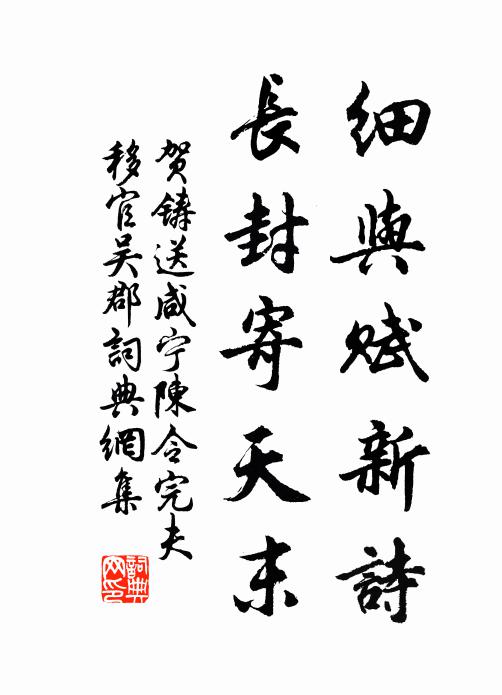 细與赋新詩
長封寄天末
贺鑄送咸宁陳令完夫
移官吴郡詞典網集
詞典
网印